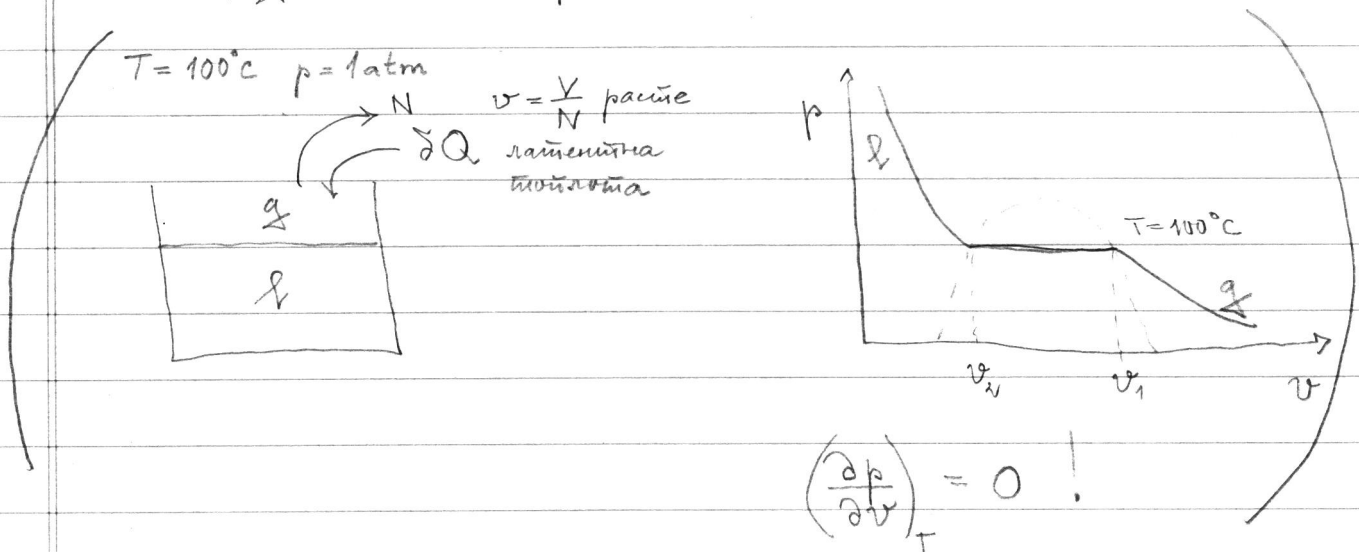 T = 100°C p = 1 atm
N v = V/N расте
δQ латентна
топлота
g
l
p
l
T = 100°C
g
v₂ v₁ v
(∂p/∂v)_T = 0 !